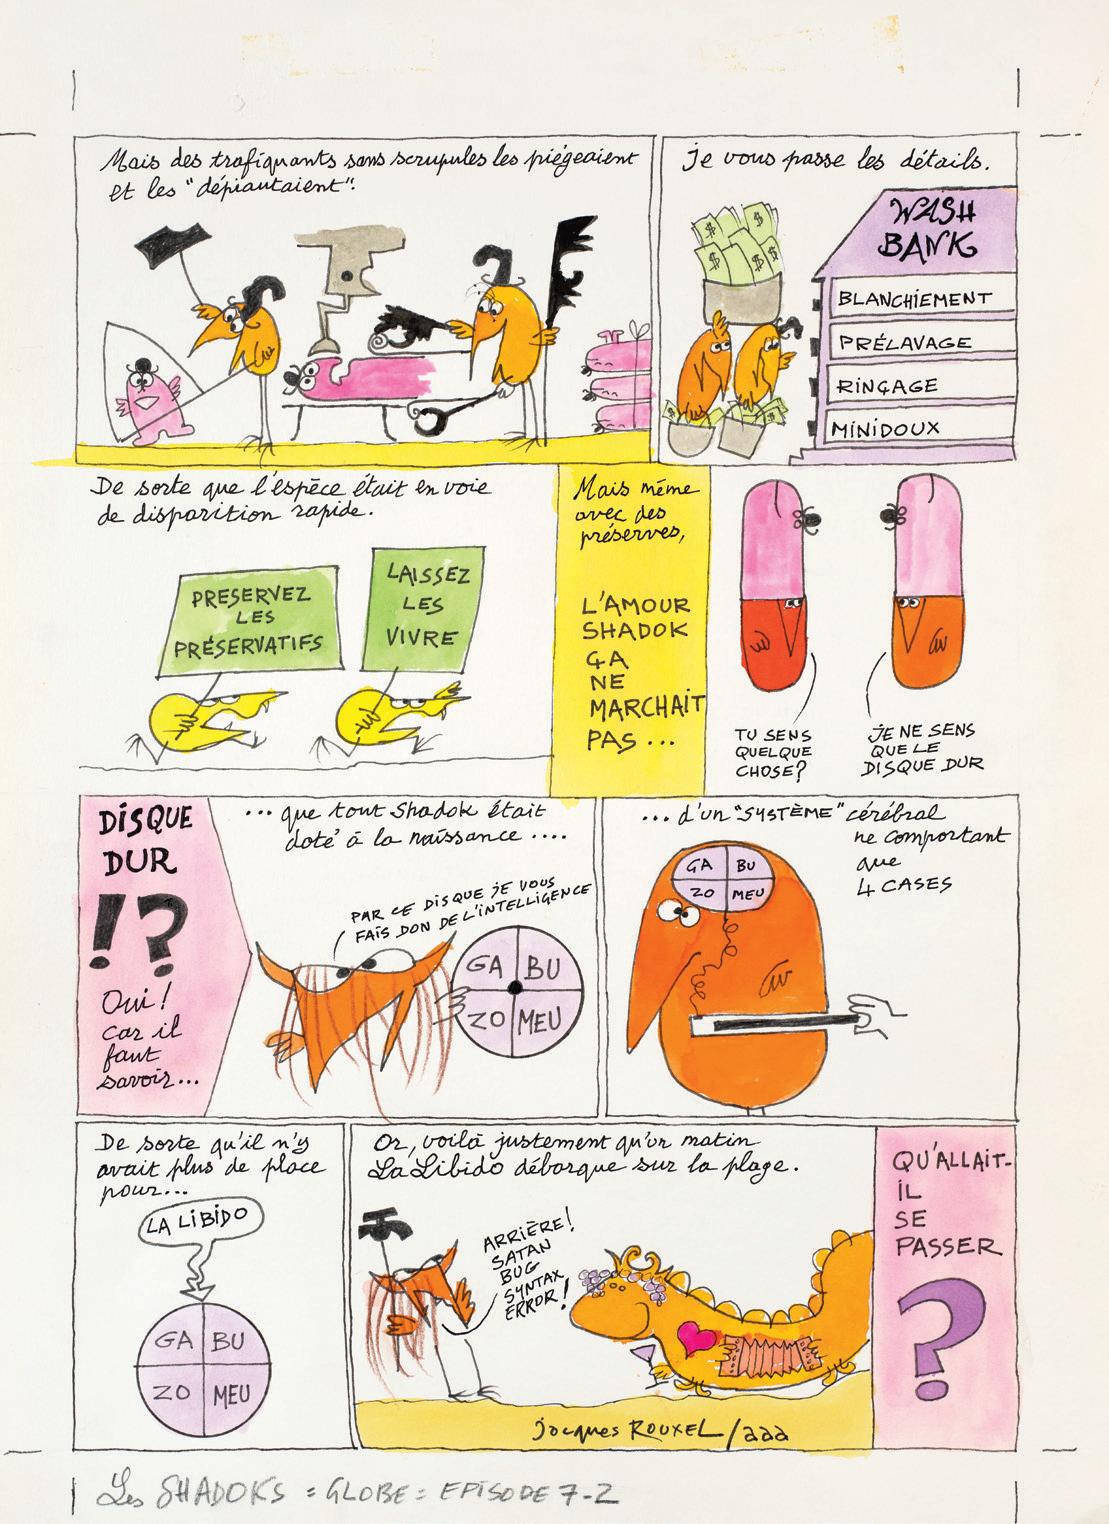 Mais des trafiquants sans scrupules les piégeaient
et les "dépiautaient".
je vous passe les détails.
$ $ $ $ $ $
WASH
BANK
BLANCHIEMENT
PRÉLAVAGE
RINÇAGE
MINIDOUX
De sorte que l'espèce était en voie
de disparition rapide.
PRESERVEZ
LES
PRÉSERVATIFS
LAISSEZ
LES
VIVRE
Mais même
avec des
préserves,
L'AMOUR
SHADOK
ÇA
NE
MARCHAIT
PAS...
TU SENS
QUELQUE
CHOSE?
JE NE SENS
QUE LE
DISQUE DUR
DISQUE
DUR
!?
Oui!
car il
faut
savoir...
... que tout Shadok était
doté à la naissance ....
PAR CE DISQUE JE VOUS
FAIS DON DE L'INTELLIGENCE
GA BU
ZO MEU
... d'un "SYSTÈME" cérébral
ne comportant
que
4 CASES
GA BU
ZO MEU
De sorte qu'il n'y
avait plus de place
pour...
LA LIBIDO
GA BU
ZO MEU
Or, voilà justement qu'un matin
La Libido débarque sur la plage.
ARRIÈRE!
SATAN
BUG
SYNTAX
ERROR!
jacques ROUXEL/aaa
QU'ALLAIT-
IL
SE
PASSER
?
Les SHADOKS = GLOBE = EPISODE 7-2